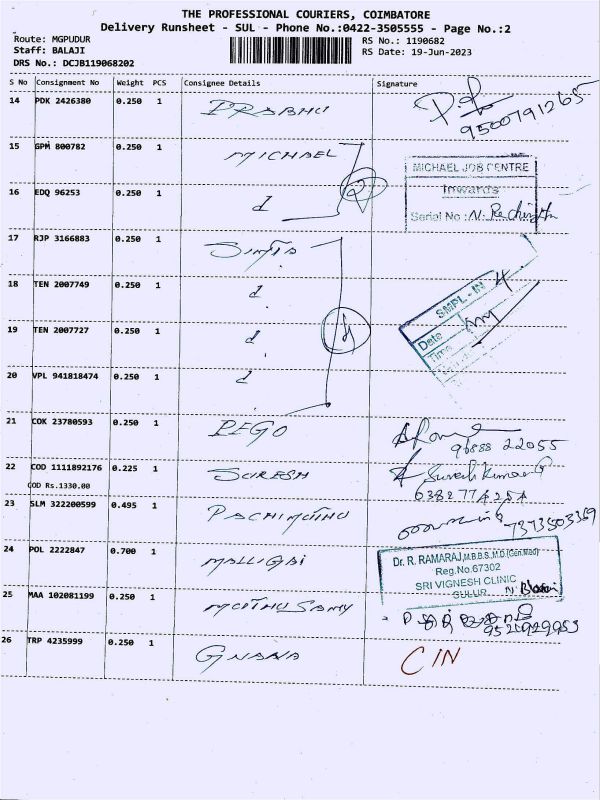 THE PROFESSIONAL COURIERS, COIMBATORE
Delivery Runsheet - SUL - Phone No.:0422-3505555 - Page No.:2
Route: MGPUDUR
RS No.: 1190682
Staff: BALAJI
RS Date: 19-Jun-2023
DRS No.: DCJB119068202
S No Consignment No Weight PCS Consignee Details Signature
14 PDK 2426380 0.250 1 PRABHU 9500791265
15 GPM 800782 0.250 1 MICHAEL
MICHAEL JOB CENTRE
Inwards
Serial No :
16 EDQ 96253 0.250 1 d
17 RJP 3166883 0.250 1
18 TEN 2007749 0.250 1 d
SMPL - IN
Date
Time
19 TEN 2007727 0.250 1 d
20 VPL 941818474 0.250 1 d
21 COK 23780593 0.250 1 PEGO
96888 22055
22 COD 1111892176 0.225 1 SURESH Suresh Kumar G
COD Rs.1330.00
23 SLM 322200599 0.495 1 PACHIMUTHU 7373503359
24 POL 2222847 0.700 1 MALLIGAI
Dr. R. RAMARAJ,M.B.B.S.,M.D.(Gen.Med)
Reg.No.67302
SRI VIGNESH CLINIC
SULUR
25 MAA 102081199 0.250 1 MUTHU SAMY
26 TRP 4235999 0.250 1 GNANA CIN